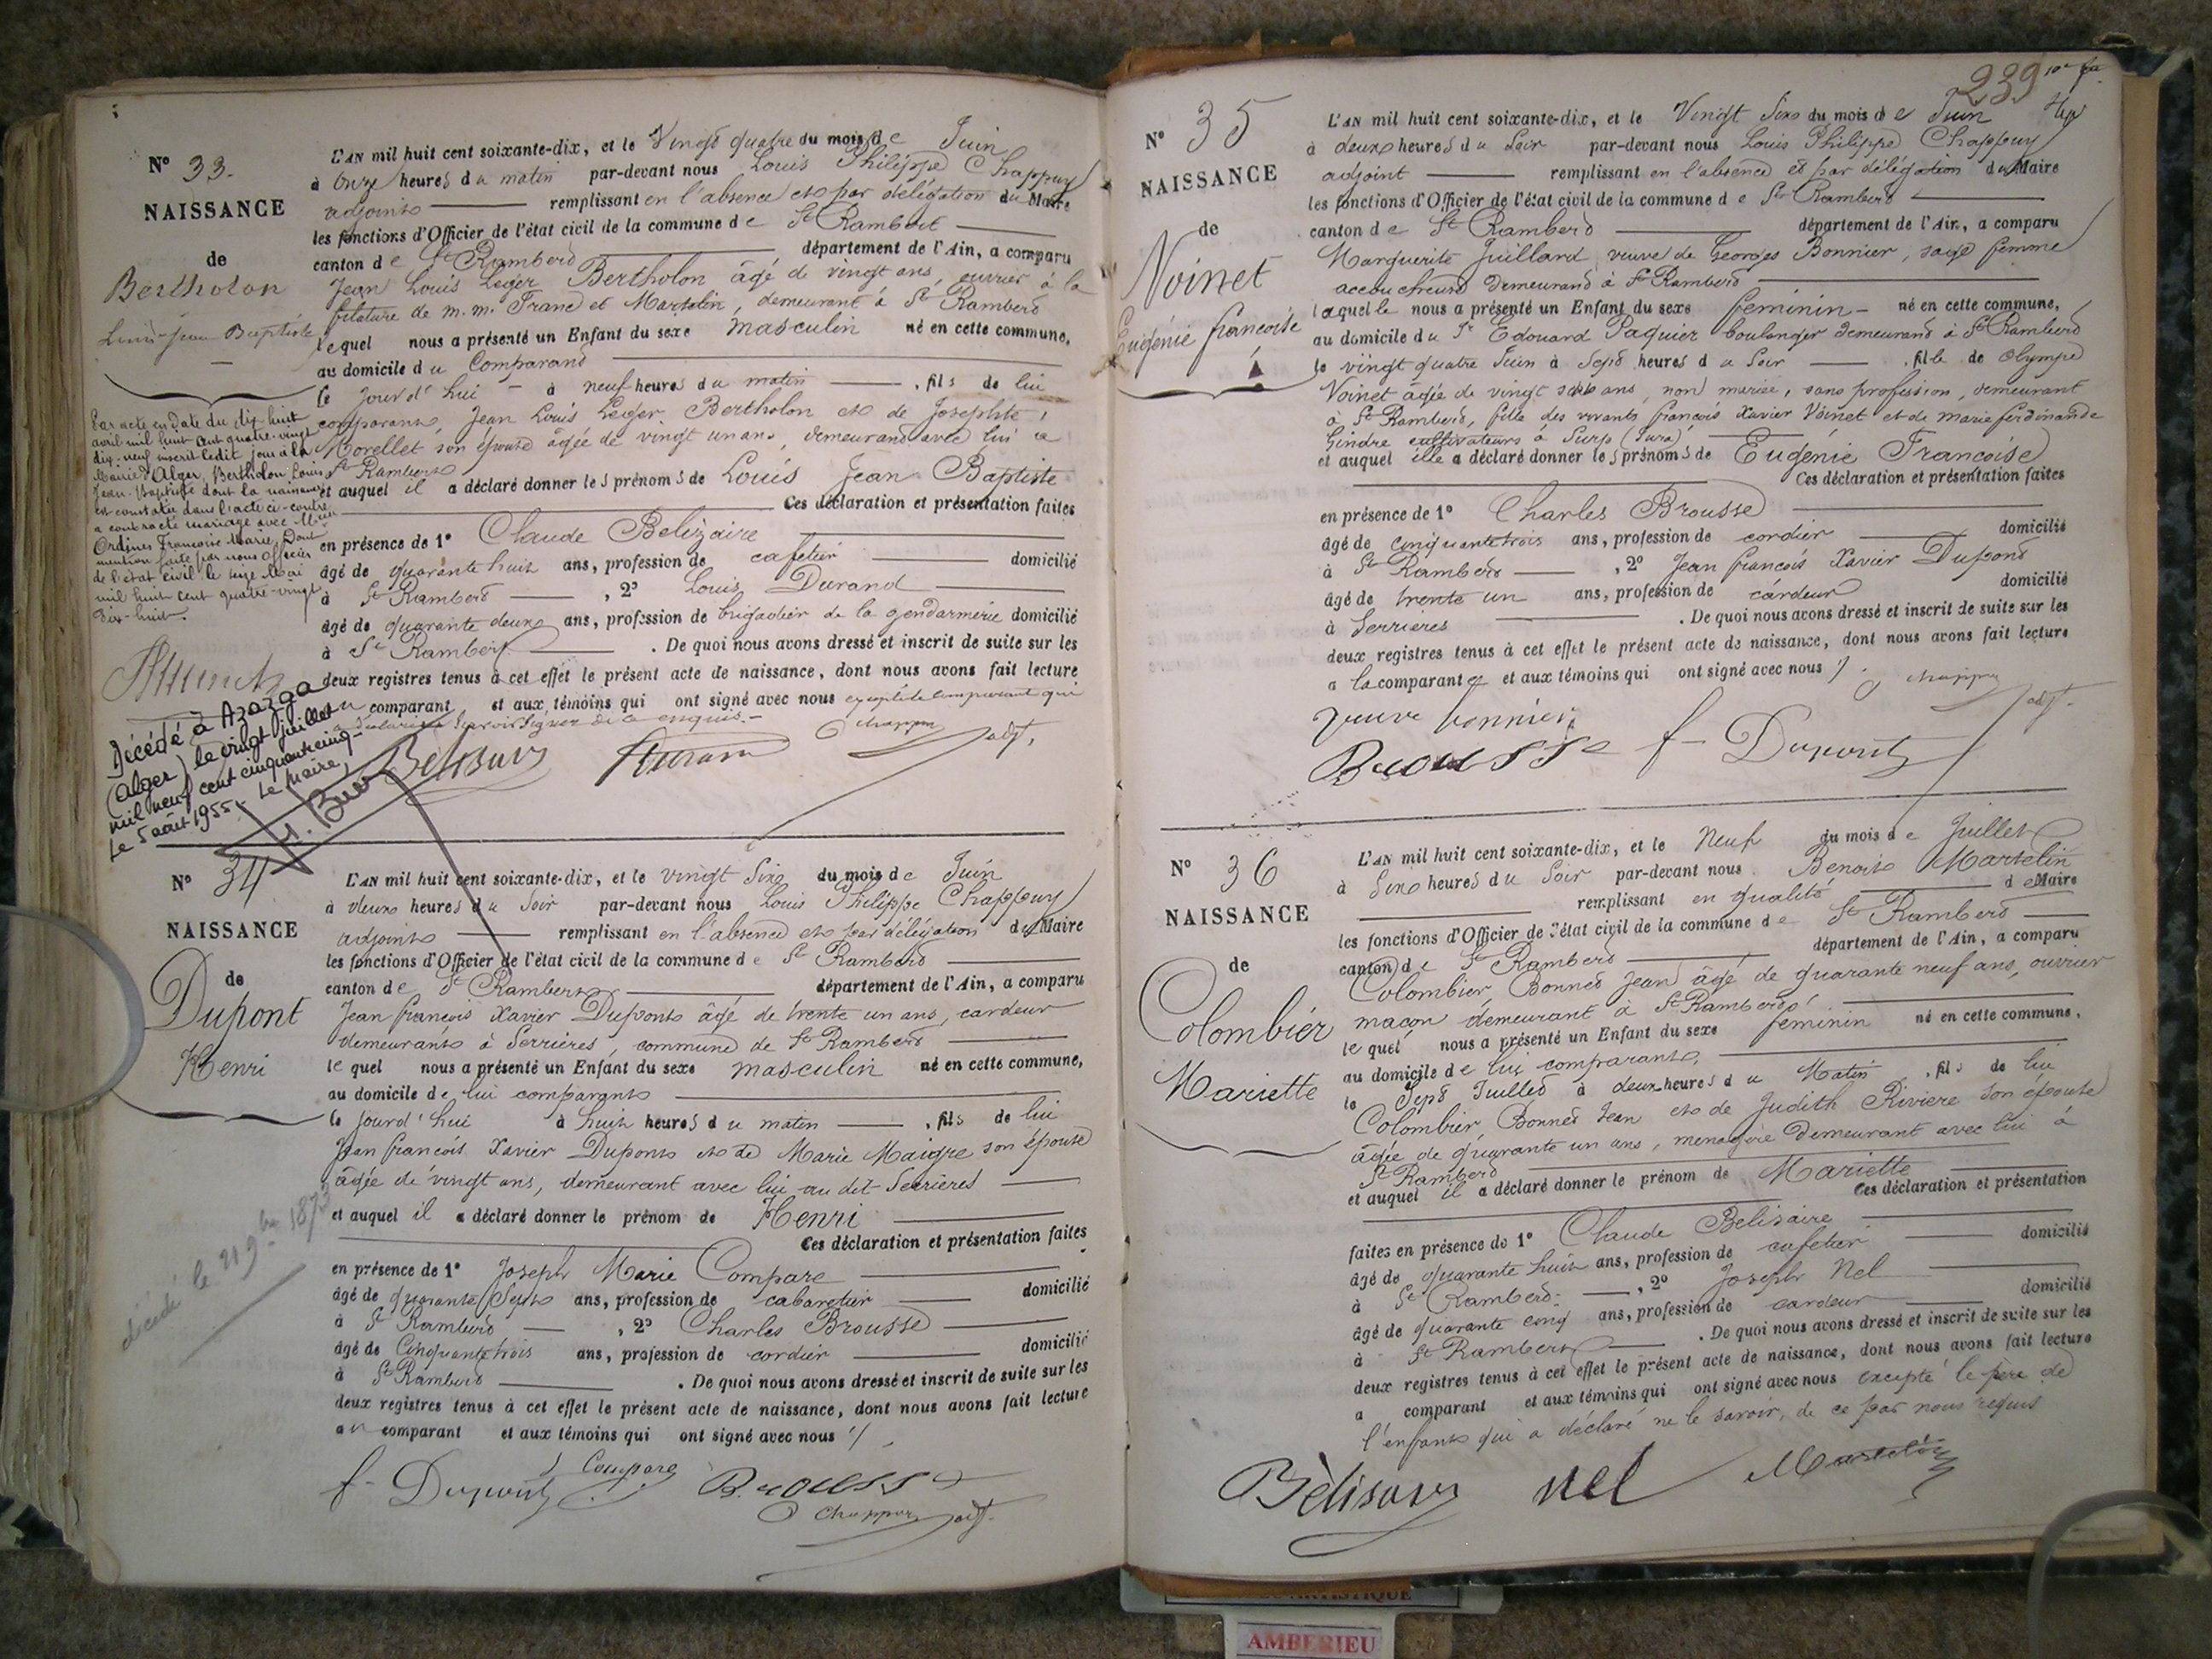 N° 33.
NAISSANCE
de
Bertholon
Louis-Jean Baptiste
L'AN mil huit cent soixante-dix, et le Vingt quatre du mois de Juin
à Onze heures du matin par-devant nous Louis Philippe Chappuy
adjoint remplissant en l'absence et par délégation du Maire
les fonctions d'Officier de l'état civil de la commune de St Rambert
canton de St Rambert département de l'Ain, a comparu
Jean Louis Leger Bertholon âgé de vingt ans, ouvrier à la
filature de m.m. Franc et Martelin, demeurant à St Rambert
lequel nous a présenté un Enfant du sexe masculin né en cette commune,
au domicile du Comparant
le jourd'hui à neuf heures du matin, fils de lui
comparant, Jean Louis Leger Bertholon et de Josephte
Morellet son épouse âgée de vingt un ans, demeurant avec lui à
St Rambert
et auquel il a déclaré donner les prénoms de Louis Jean Baptiste
Ces déclaration et présentation faites
en présence de 1° Claude Belizaire
âgé de quarante huit ans, profession de cafetier domicilié
à St Rambert, 2° Louis Durand
âgé de quarante deux ans, profession de brigadier de la gendarmerie domicilié
à St Rambert. De quoi nous avons dressé et inscrit de suite sur les
deux registres tenus à cet effet le présent acte de naissance, dont nous avons fait lecture
au comparant et aux témoins qui ont signé avec nous excepté le comparant qui
a déclaré ne savoir signer de ce enquis.
Belisaire Durand Chappuy adjt.
Par acte en date du dix huit
avril mil huit cent quatre-vingt
dix-neuf inscrit ledit jour à la
Mairie d'Alger, Bertholon Louis
Jean-Baptiste dont la naissance
est constatée dans l'acte ci-contre
a contracté mariage avec Mlle
Ordines Francoise Marie. Dont
mention faite par nous officier
de l'état civil le seize Mai
mil huit cent quatre-vingt
dix-huit.
Décédé à Azazga
(Alger) le vingt juillet
mil neuf cent cinquante cinq-
Le 5 août 1955. Le Maire,
N° 34
NAISSANCE
de
Dupont
Henri
L'AN mil huit cent soixante-dix, et le vingt Six du mois de Juin
à deux heures du Soir par-devant nous Louis Philippe Chappuy
adjoint remplissant en l'absence et par délégation du Maire
les fonctions d'Officier de l'état civil de la commune de St Rambert
canton de St Rambert département de l'Ain, a comparu
Jean françois Xavier Dupont âgé de trente un ans, cardeur
demeurant à Serrieres, commune de St Rambert
lequel nous a présenté un Enfant du sexe masculin né en cette commune,
au domicile de lui comparant
le jourd'hui à huit heures du matin, fils de lui
Jean françois Xavier Dupont et de Marie Maigre son épouse
âgée de vingt ans, demeurant avec lui au dit Serrieres
et auquel il a déclaré donner le prénom de Henri
Ces déclaration et présentation faites
en présence de 1° Joseph Marie Compare
âgé de quarante Sept ans, profession de cabaretier domicilié
à St Rambert, 2° Charles Brousse
âgé de Cinquante trois ans, profession de cordier domicilié
à St Rambert. De quoi nous avons dressé et inscrit de suite sur les
deux registres tenus à cet effet le présent acte de naissance, dont nous avons fait lecture
au comparant et aux témoins qui ont signé avec nous
f- Dupont Compare Brousse
Chappuy adjt.
décédé le 21 9bre 1873
239
N° 35
NAISSANCE
de
Voinet
Eugénie françoise
L'AN mil huit cent soixante-dix, et le Vingt Six du mois de Juin
à deux heures du Soir par-devant nous Louis Philippe Chappuy
adjoint remplissant en l'absence et par délégation du Maire
les fonctions d'Officier de l'état civil de la commune de St Rambert
canton de St Rambert département de l'Ain, a comparu
Marguerite Juillard, veuve de Georges Bonnier, sage femme
accoucheuse demeurant à St Rambert
laquelle nous a présenté un Enfant du sexe feminin né en cette commune,
au domicile du Sr Edouard Paquier boulanger demeurant à St Rambert
le vingt quatre Juin à Sept heures du Soir, fille de Olympe
Voinet âgée de vingt six ans, non mariée, sans profession, demeurant
à St Rambert, fille des vivants françois Xavier Voinet et de marie ferdinande
Gindre cultivateurs à Surp (Jura)
et auquel elle a déclaré donner les prénoms de Eugénie Francoise
Ces déclaration et présentation faites
en présence de 1° Charles Brousse
âgé de cinquante trois ans, profession de cordier domicilié
à St Rambert, 2° Jean francois Xavier Dupont
âgé de trente un ans, profession de cardeur domicilié
à Serrieres. De quoi nous avons dressé et inscrit de suite sur les
deux registres tenus à cet effet le présent acte de naissance, dont nous avons fait lecture
a la comparante et aux témoins qui ont signé avec nous
Chappuy adjt.
veuve bonnier
Brousse f- Dupont
N° 36
NAISSANCE
de
Colombier
Mariette
L'AN mil huit cent soixante-dix, et le Neuf du mois de Juillet
à Six heures du Soir par-devant nous Benoit Martelin
remplissant en qualité de Maire
les fonctions d'Officier de l'état civil de la commune de St Rambert
canton de St Rambert département de l'Ain, a comparu
Colombier Bonnet Jean âgé de quarante neuf ans, ouvrier
maçon demeurant à St Rambert
lequel nous a présenté un Enfant du sexe feminin né en cette commune,
au domicile de lui comparant,
le Sept Juillet à deux heures du Matin, fils de lui
Colombier Bonnet Jean et de Judith Riviere son épouse
âgée de quarante un ans, menagère demeurant avec lui à
St Rambert
et auquel il a déclaré donner le prénom de Mariette
Ces déclaration et présentation
faites en présence de 1° Claude Belisaire
âgé de quarante huit ans, profession de cafetier domicilié
à St Rambert, 2° Joseph Nel
âgé de quarante cinq ans, profession de cardeur domicilié
à St Rambert. De quoi nous avons dressé et inscrit de suite sur les
deux registres tenus à cet effet le présent acte de naissance, dont nous avons fait lecture
a comparant et aux témoins qui ont signé avec nous excepté le père de
l'enfant qui a déclaré ne le savoir, de ce par nous requis
Bélisaire nel Martelin
AMBERIEU